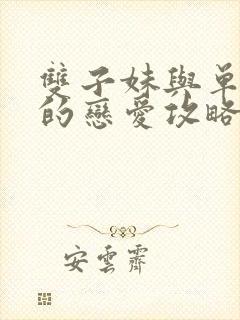 雙子妹與單
的戀愛攻略
安雲霽